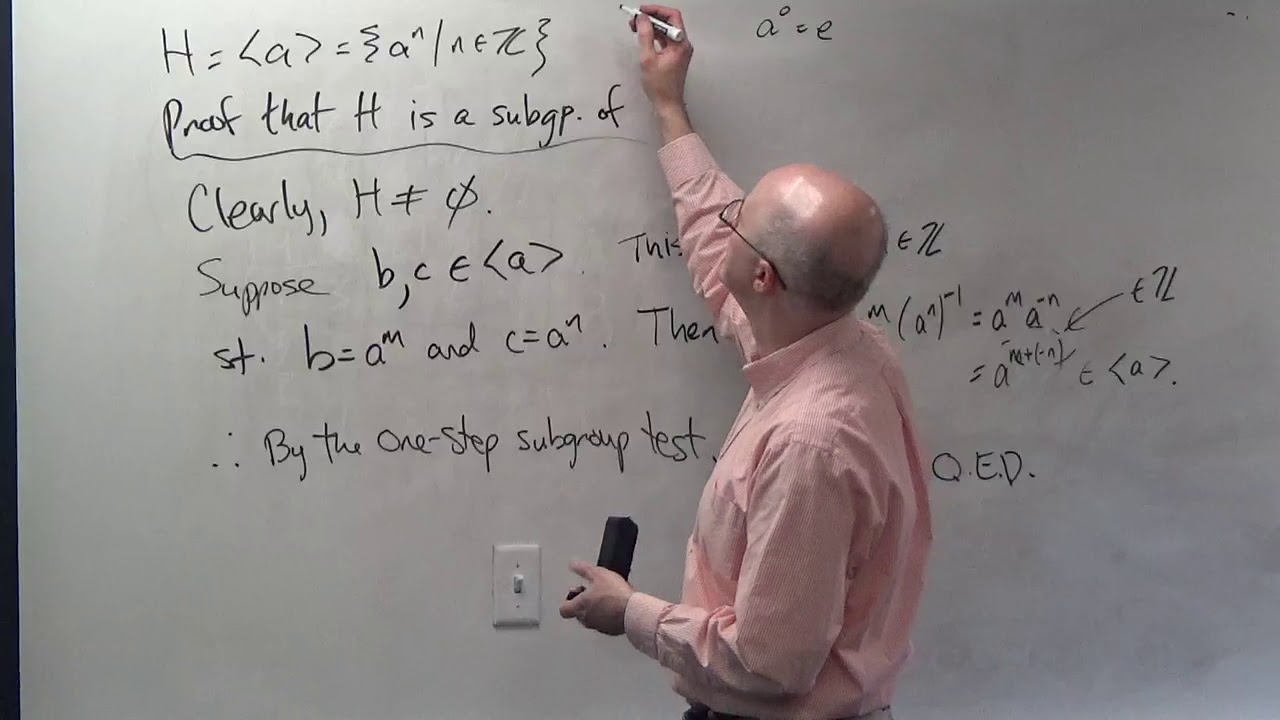 H = <a> = {aⁿ | n ∈ ℤ}
a⁰ = e
Proof that H is a subgp. of
Clearly, H ≠ ∅.
Suppose b, c ∈ <a>. This ∈ ℤ
st. b = aᵐ and c = aⁿ. Then ᵐ(aⁿ)⁻¹ = aᵐa⁻ⁿ ∈ ℤ
= aᵐ⁺⁽⁻ⁿ⁾ ∈ <a>.
∴ By the one-step subgroup test, Q.E.D.